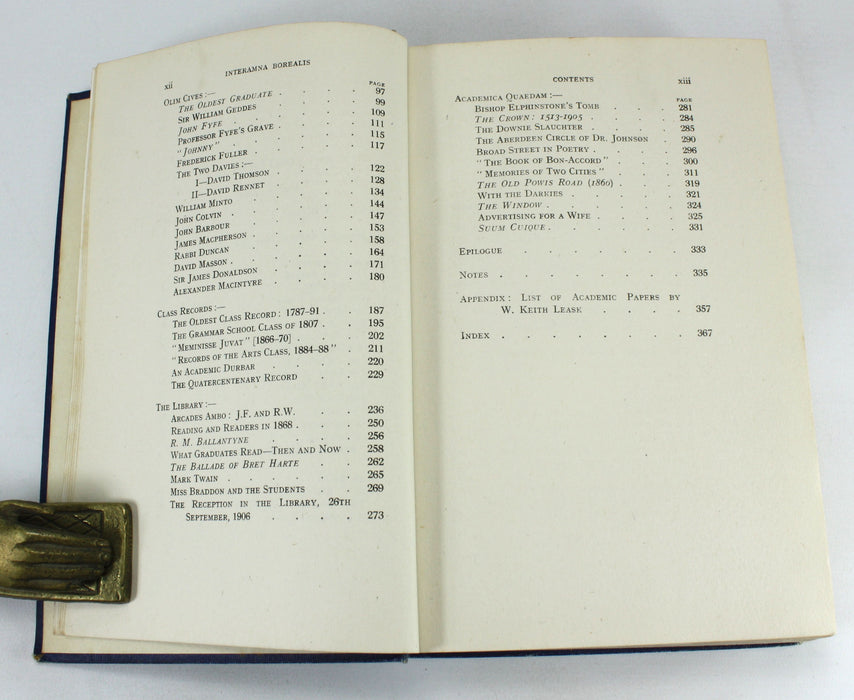 xii
INTERAMNA BOREALIS
PAGE
OLIM CIVES :—
THE OLDEST GRADUATE . . . . 97
SIR WILLIAM GEDDES . . . . 99
JOHN FYFE . . . . 109
PROFESSOR FYFE'S GRAVE . . . . 111
"JOHNNY" . . . . 115
FREDERICK FULLER . . . . 117
THE TWO DAVIES :—
I—DAVID THOMSON . . . . 122
II—DAVID RENNET . . . . 128
WILLIAM MINTO . . . . 134
JOHN COLVIN . . . . 144
JOHN BARBOUR . . . . 147
JAMES MACPHERSON . . . . 153
RABBI DUNCAN . . . . 158
DAVID MASSON . . . . 164
SIR JAMES DONALDSON . . . . 171
ALEXANDER MACINTYRE . . . . 180
CLASS RECORDS :—
THE OLDEST CLASS RECORD : 1787-91 . . 187
THE GRAMMAR SCHOOL CLASS OF 1807 . . 195
"MEMINISSE JUVAT" [1866-70] . . . 202
"RECORDS OF THE ARTS CLASS, 1884-88" . 211
AN ACADEMIC DURBAR . . . . 220
THE QUATERCENTENARY RECORD . . 229
THE LIBRARY :—
ARCADES AMBO : J.F. AND R.W. . . 236
READING AND READERS IN 1868 . . . 250
R. M. BALLANTYNE . . . . 256
WHAT GRADUATES READ—THEN AND NOW . 258
THE BALLADE OF BRET HARTE . . 262
MARK TWAIN . . . . . 265
MISS BRADDON AND THE STUDENTS . . 269
THE RECEPTION IN THE LIBRARY, 26TH
SEPTEMBER, 1906 . . . . 273
CONTENTS
xiii
PAGE
ACADEMICA QUAEDAM :—
BISHOP ELPHINSTONE'S TOMB . . . 281
THE CROWN : 1513-1905 . . . . 284
THE DOWNIE SLAUGHTER . . . . 285
THE ABERDEEN CIRCLE OF DR. JOHNSON . 290
BROAD STREET IN POETRY . . . . 296
"THE BOOK OF BON-ACCORD" . . . 300
"MEMORIES OF TWO CITIES" . . . 311
THE OLD POWIS ROAD (1860) . . . 319
WITH THE DARKIES . . . . . 321
THE WINDOW . . . . . . 324
ADVERTISING FOR A WIFE . . . . 325
SUUM CUIQUE . . . . . . 331
EPILOGUE . . . . . . . 333
NOTES . . . . . . . . 335
APPENDIX : LIST OF ACADEMIC PAPERS BY
W. KEITH LEASK . . . . 357
INDEX . . . . . . . . 367